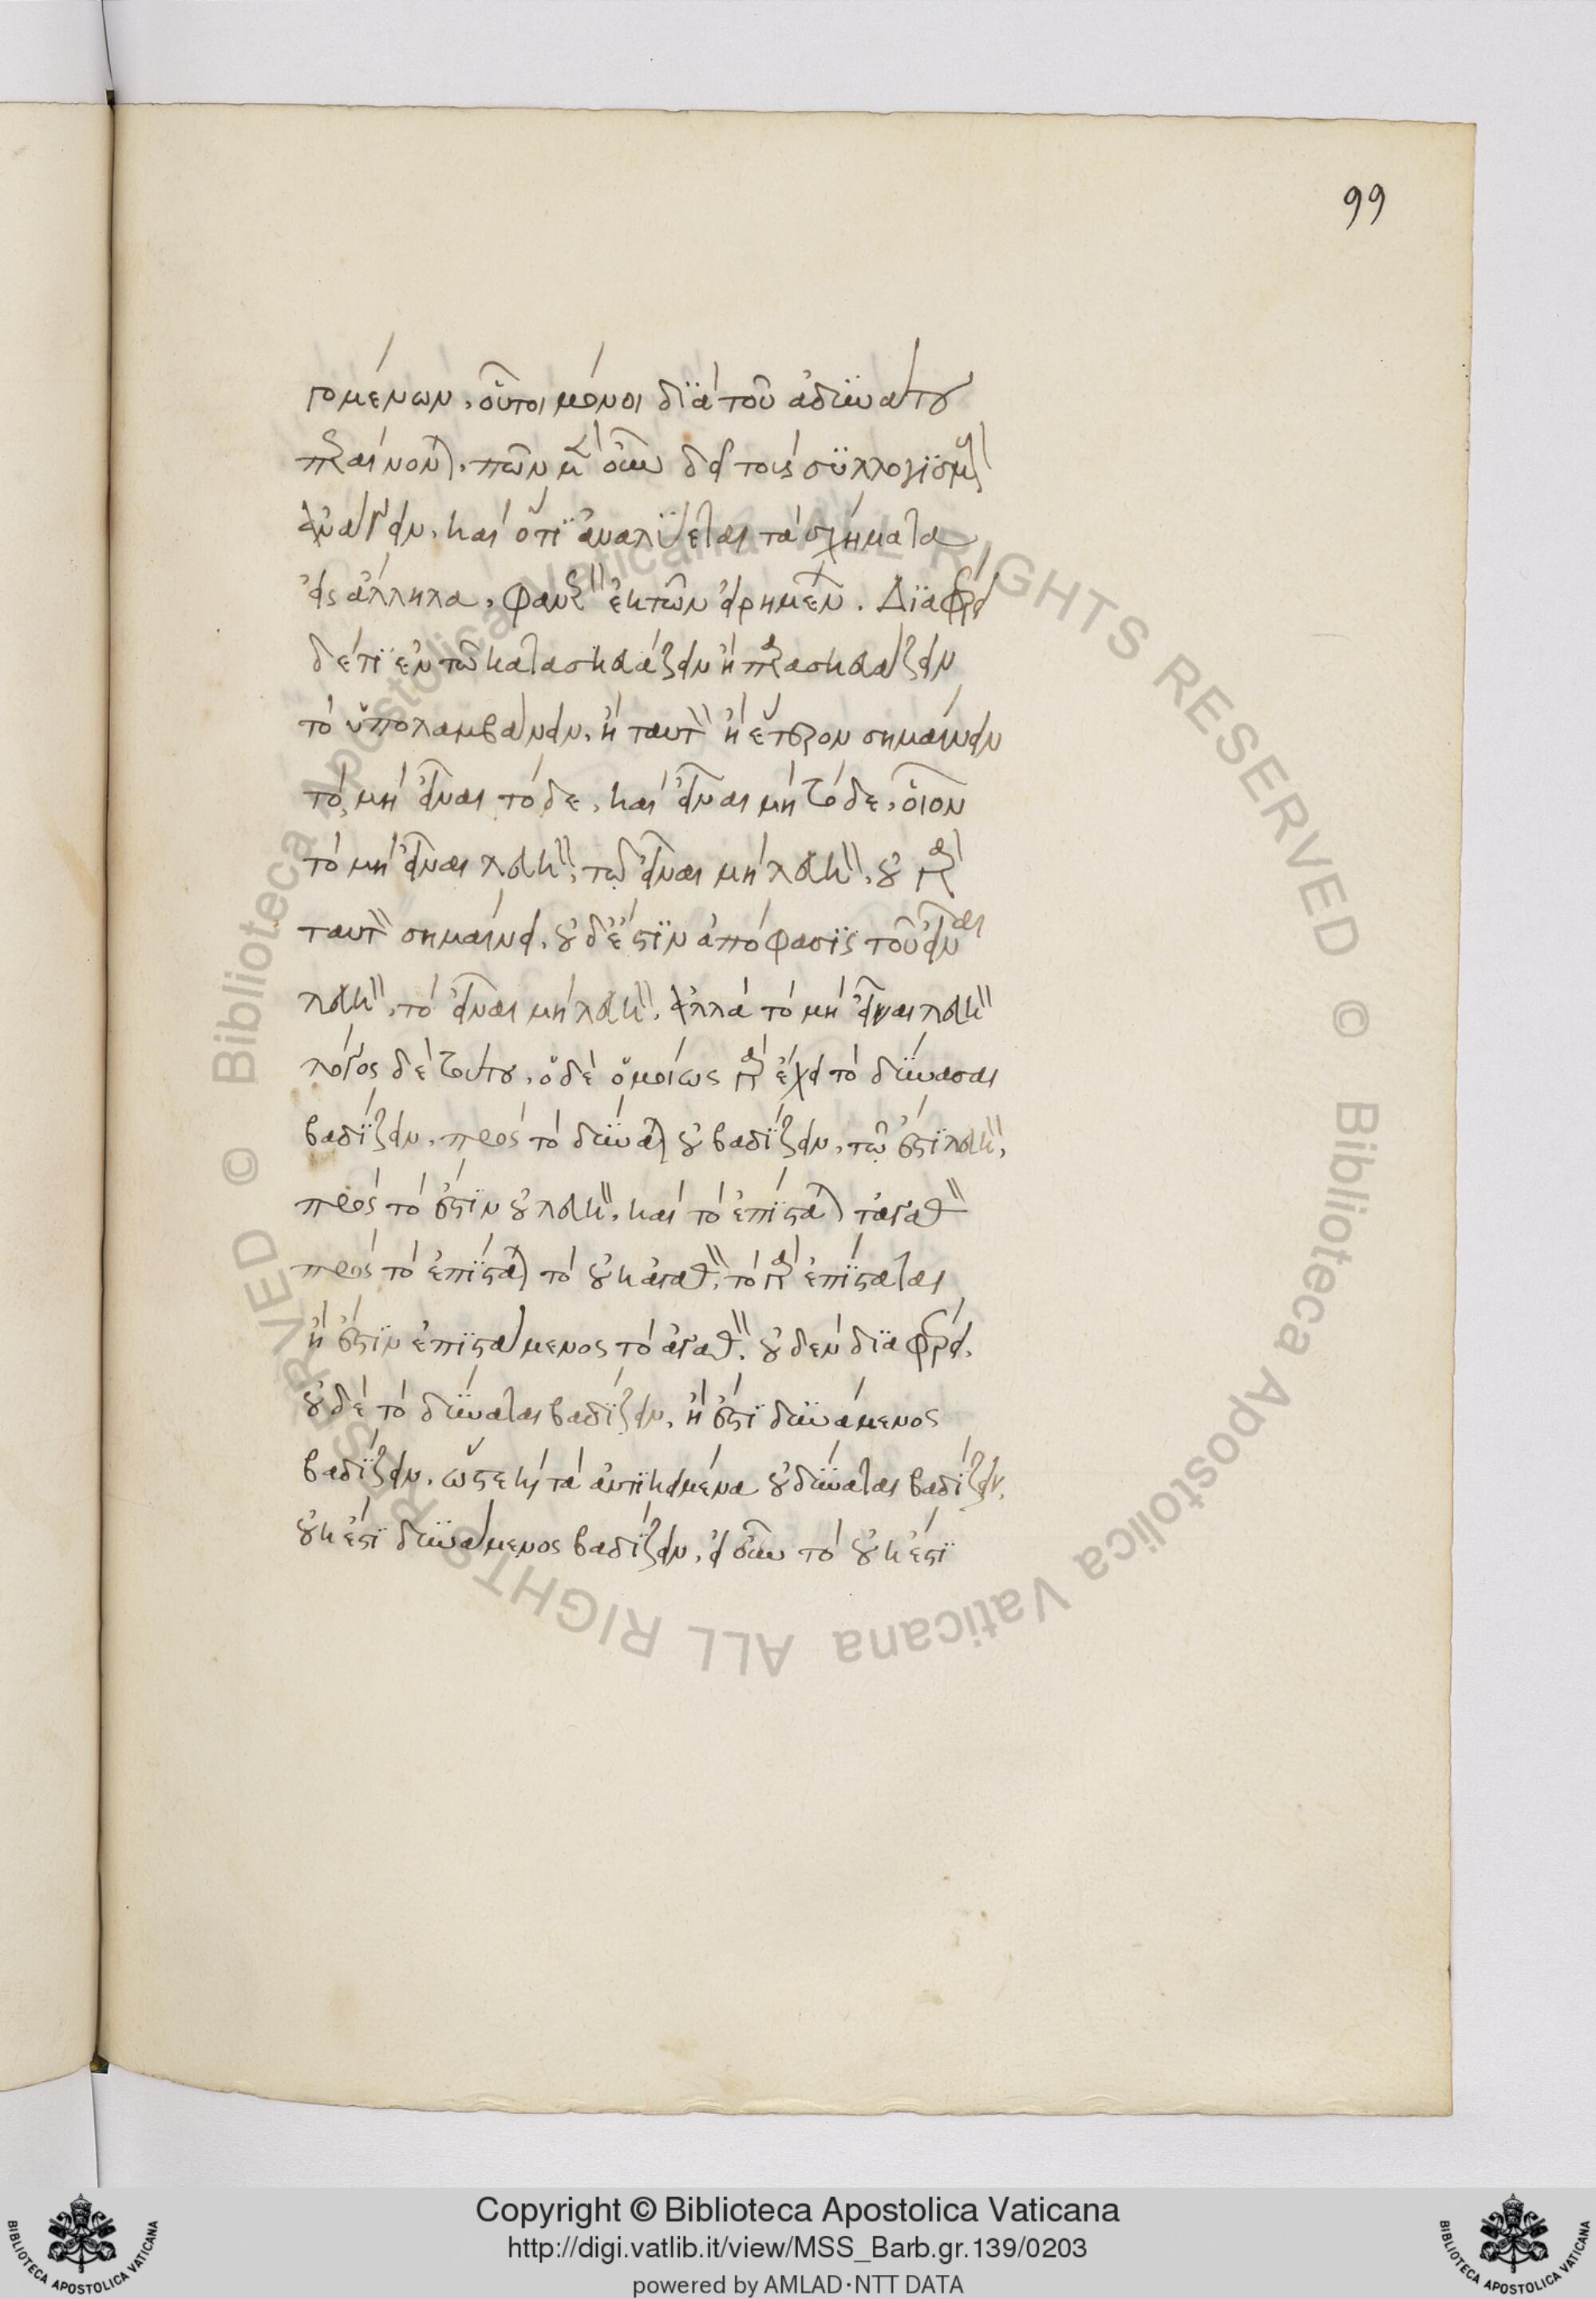 99
γομένων, οὗτοι μόνοι διὰ τοῦ ἀδυνάτου
περαίνονται. πῶς μὲν οὖν δεῖ τοὺς συλλογισμοὺς
ἀνάγειν, καὶ ὅτι ἀναλύεται τὰ σχήματα
εἰς ἄλληλα, φανερὸν ἐκ τῶν εἰρημένων. Διαφέρει
δέ τι ἐν τῷ κατασκευάζειν ἢ ἀνασκευάζειν
τὸ ὑπολαμβάνειν, ἢ ταυτὸν ἢ ἕτερον σημαίνειν
τὸ μὴ εἶναι τόδε, καὶ εἶναι μὴ τόδε, οἷον
τὸ μὴ εἶναι λευκὸν, τῷ εἶναι μὴ λευκὸν, οὐ γὰρ
ταυτὸν σημαίνει, οὐδέ ἐστιν ἀπόφασις τοῦ εἶναι
λευκὸν, τὸ εἶναι μὴ λευκὸν, ἀλλὰ τὸ μὴ εἶναι λευκὸν
λόγος δὲ τούτου, ὅδε ὁμοίως γὰρ ἔχει τὸ δύνασαι
βαδίζειν, πρὸς τὸ δύναται οὐ βαδίζειν, τῷ ἔστι λευκὸν,
πρὸς τὸ ἔστιν οὐ λευκὸν, καὶ τὸ ἐπίσταται τἀγαθὸν
πρὸς τὸ ἐπίσταται τὸ οὐκ ἀγαθὸν, τὸ γὰρ ἐπίσταται
ἢ ἔστιν ἐπιστάμενος τὸ ἀγαθὸν, οὐδὲν διαφέρει.
οὐδὲ τὸ δύναται βαδίζειν, ἢ ἔστι δυνάμενος
βαδίζειν, ὥστε καὶ τὰ ἀντικείμενα οὐ δύναται βαδίζειν,
οὐκ ἔστι δυνάμενος βαδίζειν, εἰ οὖν τὸ οὐκ ἔστι
Copyright © Biblioteca Apostolica Vaticana
http://digi.vatlib.it/view/MSS_Barb.gr.139/0203
powered by AMLAD·NTT DATA